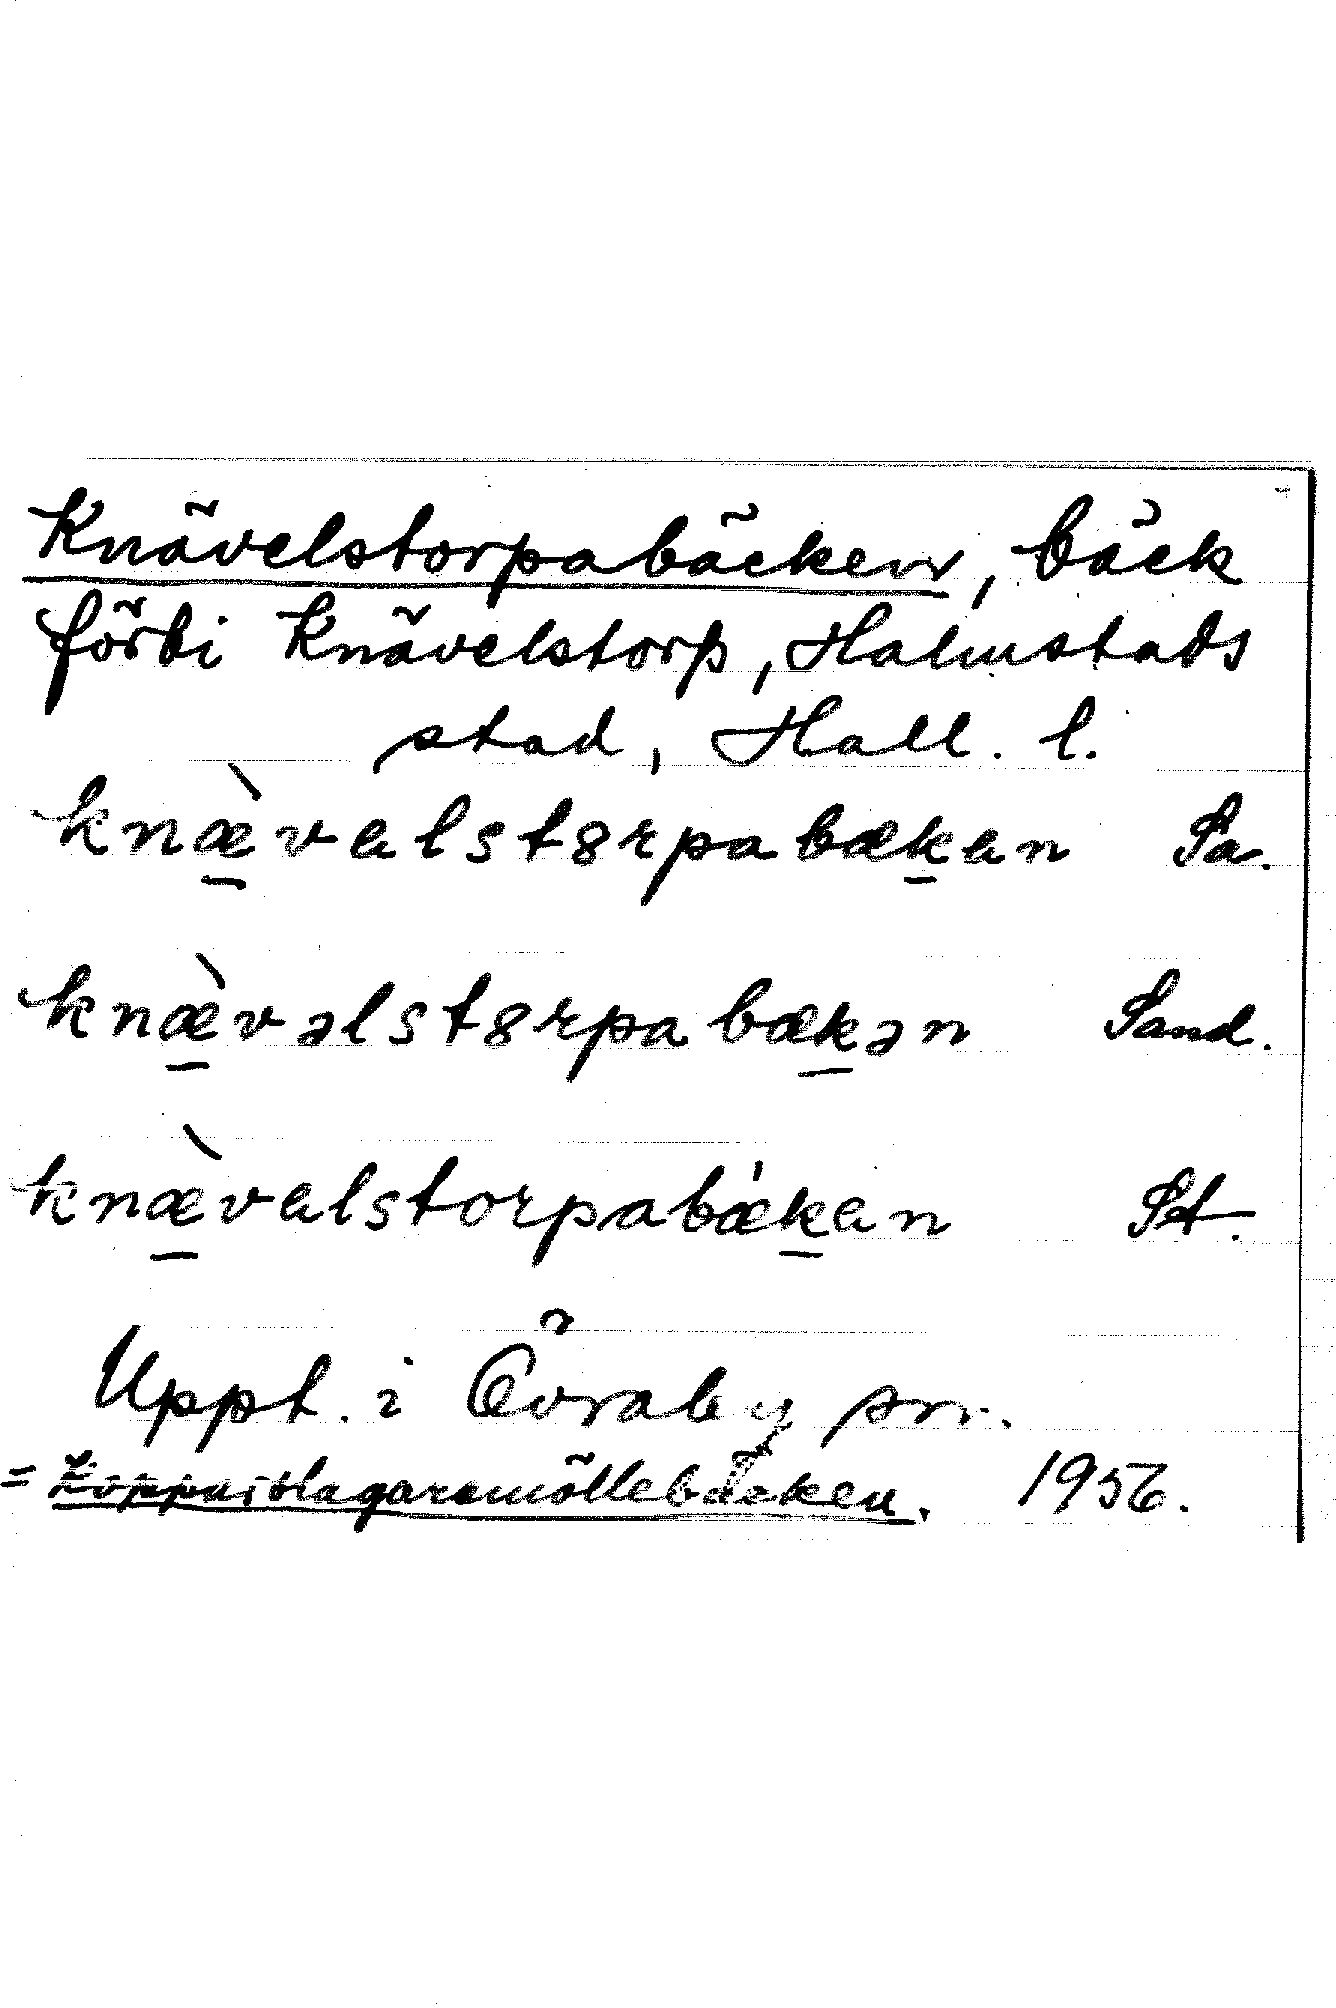 Knävelstorpabäcken, bäck
förbi Knävelstorp, Halmstads
stad, Hall. l.
knæ̀valst8rpabækan Sa.
knæ̀vəlst8rpabækən Sand.
knæ̀valstorpabækan St.
Uppt. i Övraby sn.
= Kopparslagaremöllebäcken. 1956.